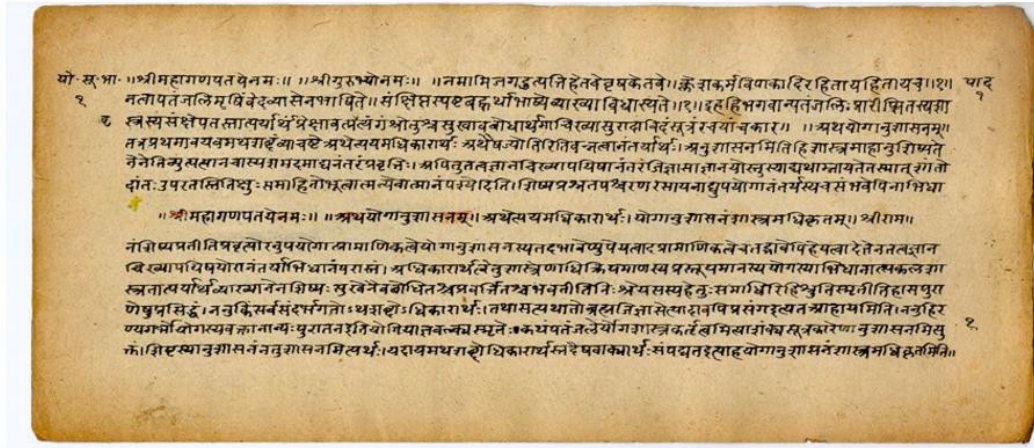 यो·सू·भा· ॥श्रीमहागणपतयेनमः॥ ॥श्रीगुरुभ्योनमः॥ ॥नमामिजगदुत्पत्तिहेतवेवृषकेतवे॥क्लेशकर्मविपाकादिरहितायहितायच॥१॥ पाद
१ नत्वापतंजलिमृषिंवेदव्यासेनभाषिते॥संक्षिप्तस्पष्टबह्वर्थाभाष्येव्याख्याविधास्यते॥१॥इहहिभगवान्पतंजलिःप्रारीप्सितस्यशा १
स्त्रस्यसंक्षेपतस्तात्पर्यार्थंप्रेक्षावत्प्रवृत्त्यंगंश्रोतुश्चसुखावबोधार्थमाचिख्यासुरादाविदंसूत्रंरचयांचकार॥ ॥अथयोगानुशासनम्॥
तत्रप्रथमावयवमथशब्दंव्याचष्टेअथेत्ययमधिकारार्थः अथैषज्योतिरितिवन्नत्वानंतर्यार्थः।अनुशासनमितिहिशास्त्रमाहानुशिष्यते
नेनेतिव्युत्पत्त्यानचास्यशमदमाद्यनंतरंप्रवृत्तिः।अपितुतत्वज्ञानचिख्यापयिषानंतरंजिज्ञासाज्ञानयोस्तुस्याद्यथाम्नायतेतस्मात् शांतो
दांतःउपरतस्तितिक्षुःसमाहितोभूत्वात्मन्येवात्मानंपश्येदिति।शिष्यप्रश्नतपश्चरणरसायनाद्युपयोगानंतर्यस्यचसंभवेपिनाभिधा
॥श्रीमहागणपतयेनमः॥ ॥अथयोगानुशासनम्॥ अथेत्ययमधिकारार्थः।योगानुशासनंशास्त्रमधिकृतम्॥ श्रीराम॥
नंशिष्यप्रतीतिप्रवृत्योरनुपयोगात्प्रामाणिकत्वेयोगानुशासनस्यतदभावेप्युपेयत्वादप्रामाणिकत्वेचतद्भावेपिहेयत्वादेतेनतत्वज्ञान
चिख्यापयिषयोरानंतर्याभिधानंपरास्तं।अधिकारार्थत्वेतुशास्त्रेणाधिक्रियमाणस्यप्रस्तूयमानस्ययोगस्याभिधानात्सकलशा
स्त्रतात्पर्यार्थव्याख्यानेनशिष्यःसुखेनैवबोधितश्चप्रवर्तितश्चभवतीतिनिःश्रेयसस्यहेतुःसमाधिरितिहिश्रुतिस्मृतीतिहासपुरा
णेषुप्रसिद्धं।ननुकिंसर्वसंदर्भगतोऽथशब्दोऽधिकारार्थः।तथासत्यथातोब्रह्मजिज्ञासेत्यादावपिप्रसंगइत्यतआहायमिति।ननुहिर
ण्यगर्भोयोगस्यवक्तानान्यःपुरातनइतियोगियाज्ञवल्क्यस्मृतेःकथंपतंजलेर्योगशास्त्रकर्तृत्वमित्याशंक्यसूत्रकारेणानुशासनमित्यु १
क्तं।शिष्टस्यानुशासनंनतुशासनमित्यर्थः।यदायमथशब्दोधिकारार्थस्तदैषवाक्यार्थःसंपद्यतइत्याहयोगानुशासनंशास्त्रमधिकृतमिति॥